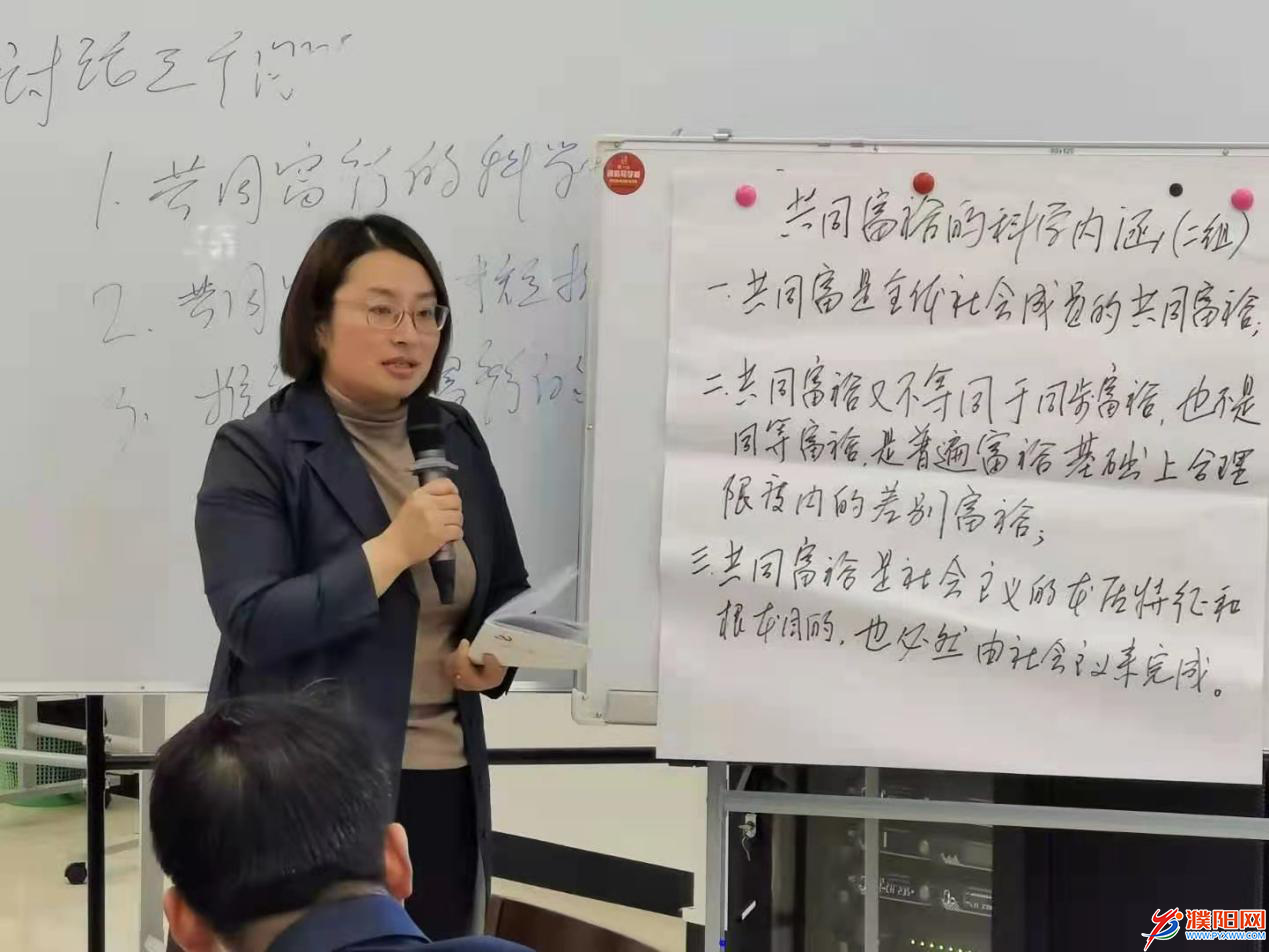 讨论三个问
1. 共同富裕的科学
2. 共同
3. 推
共同富裕的科学内涵(二组)
一.共同富是全体社会成员的共同富裕;
二.共同富裕又不等同于同步富裕,也不是
同等富裕,是普遍富裕基础上合理
限度内的差别富裕;
三.共同富裕是社会主义的本质特征和
根本目的,也必然由社会主义来完成。
濮阳网
WWW.PYXWW.COM